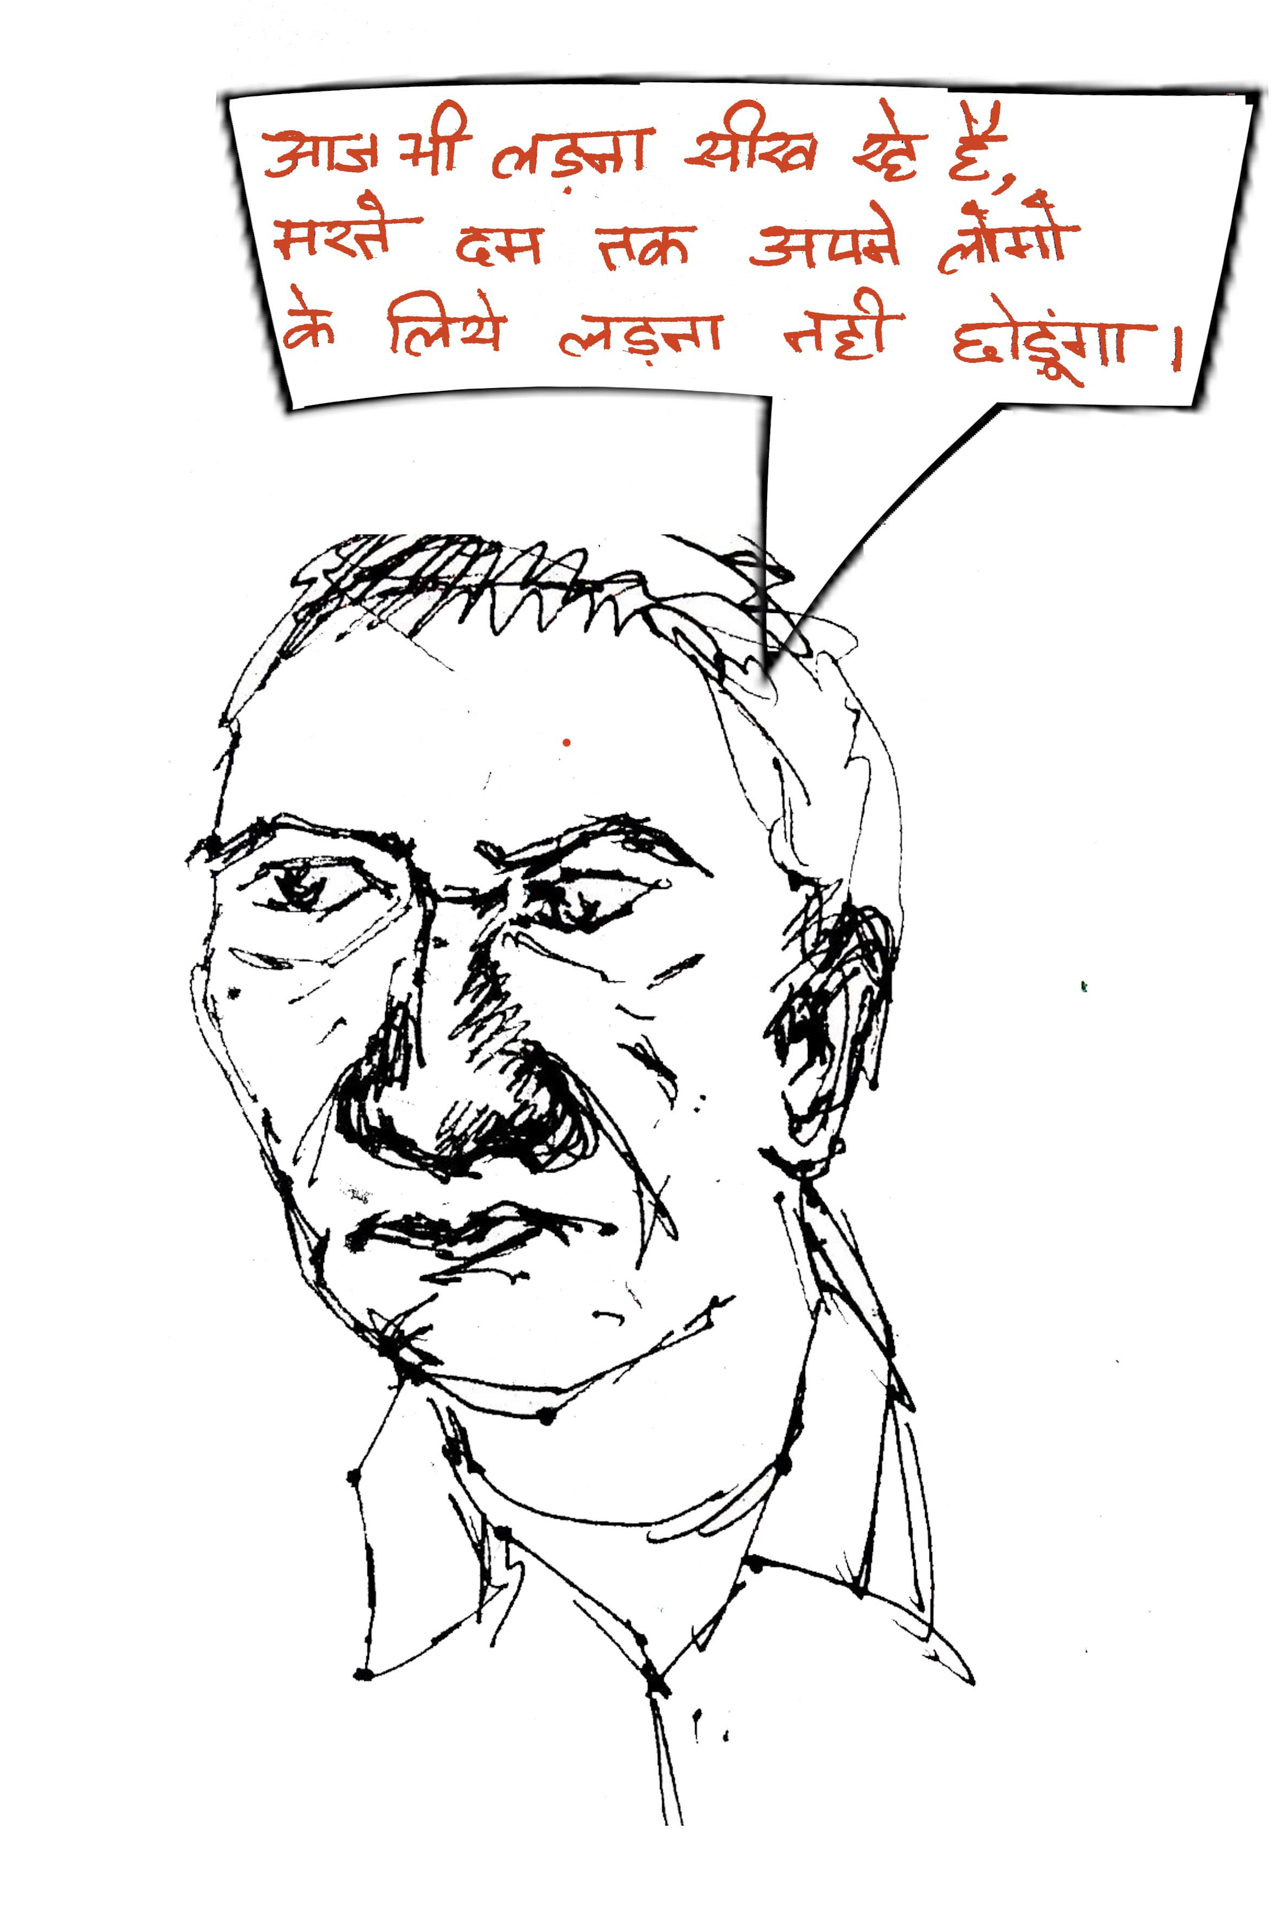 आज भी लड़ना सीख रहे हैं,
मरते दम तक अपने लोगों
के लिये लड़ना नही छोड़ूंगा।